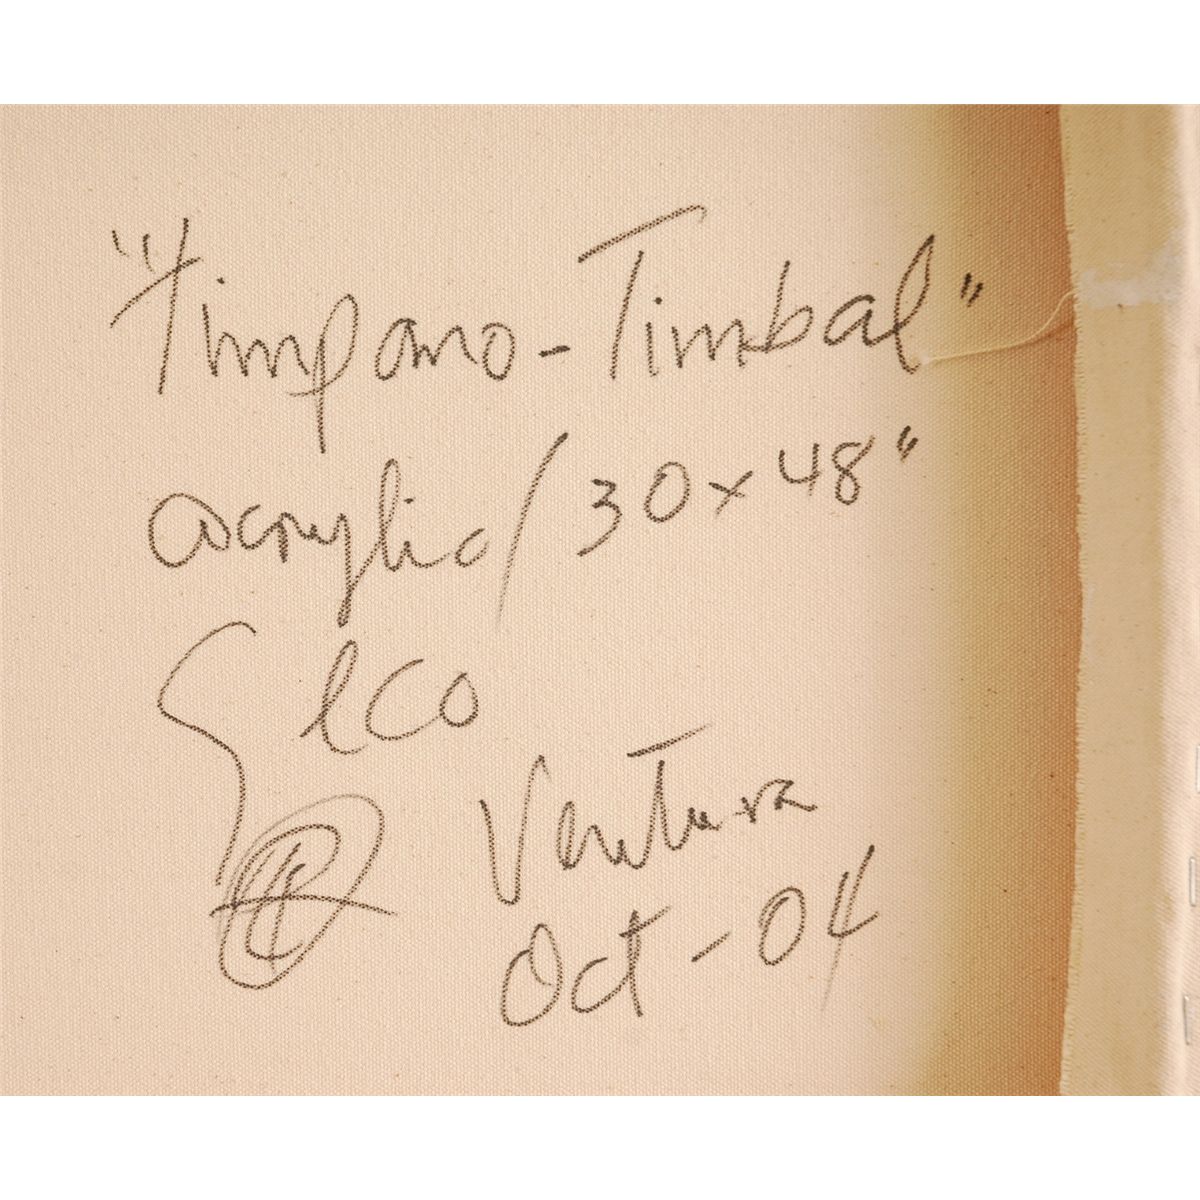 "Timpano-Timbal"
acrylic/30x48"
Elco
Ventura
Oct-04